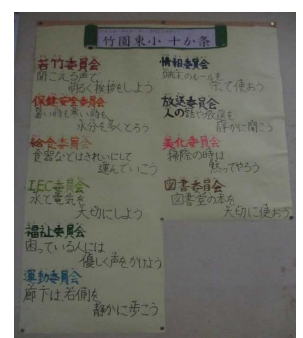 竹園東小 十か条
若竹委員会
聞こえる声で
明るく挨拶をしよう
保健安全委員会
暑い時も寒い時も
水分をとろう
給食委員会
食器などはきれいにして
運んでいこう
IEC委員会
水と電気を
大切にしよう
福祉委員会
困っている人には
優しく声をかけよう
運動委員会
廊下は、右側を
静かに歩こう
情報委員会
端末のルールを
守って使おう
放送委員会
人の話や放送を
静かに聞こう
美化委員会
掃除の時は
黙ってやろう
図書委員会
図書室の本を
大切に使おう